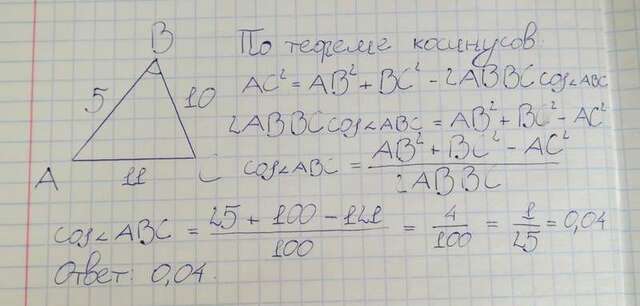 B
По теореме косинусов
5 10
AC² = AB² + BC² - 2ABBCcos∠ABC
2ABBCcos∠ABC = AB² + BC² - AC²
A 11 C
cos∠ABC = (AB² + BC² - AC²) / 2ABBC
cos∠ABC = (25 + 100 - 121) / 100 = 4/100 = 1/25 = 0,04
Ответ: 0,04.